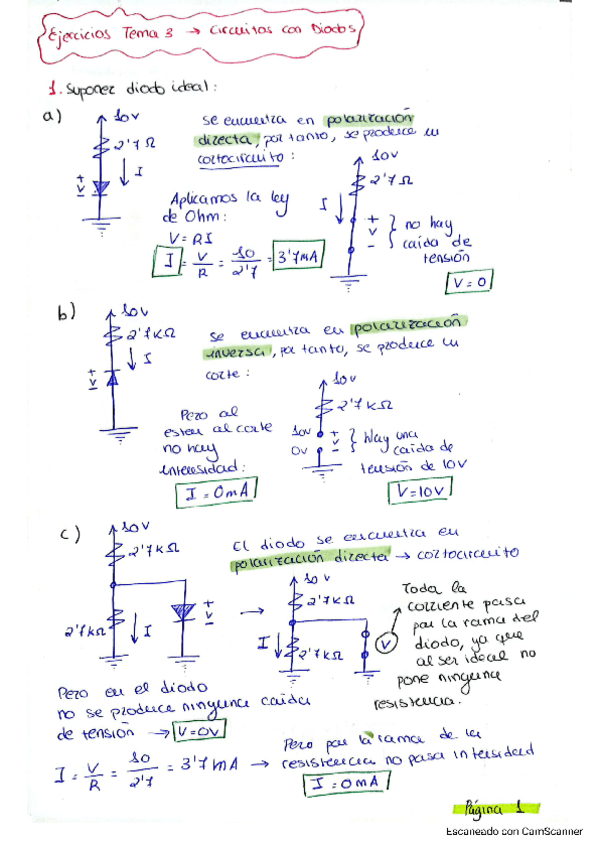 Ejercicios Tema 3 → Circuitos con Diodos
1. Suponer diodo ideal:
a)
10V
2'7Ω
I
+
V
-
se encuentra en polarización
directa, por tanto, se produce un
cortocircuito:
Aplicamos la ley
de Ohm:
V = RI
I = V/R = 10/2'7 = 3'7mA
10V
2'7Ω
I
+
-
no hay
caida de
tensión
V = 0
b)
10V
2'7kΩ
I
+
V
-
se encuentra en polarización
inversa, por tanto, se produce un
corte:
Pero al
estar al corte
no hay
intensidad:
I = 0mA
10V
2'7kΩ
10V
0V
+
V
-
Hay una
caída de
tensión de 10V
V = 10V
c)
10V
2'7kΩ
2'7kΩ
I
+
V
-
El diodo se encuentra en
polarización directa → cortocircuito
→
10V
2'7kΩ
I
2'7kΩ
V
Toda la
corriente pasa
por la rama del
diodo, ya que
al ser ideal no
pone ninguna
resistencia.
Pero en el diodo
no se produce ninguna caída
de tensión → V = 0V
I = V/R = 10/2'7 = 3'7mA → Pero por la rama de la
resistencia no pasa intensidad
I = 0mA
Página 1
Escaneado con CamScanner